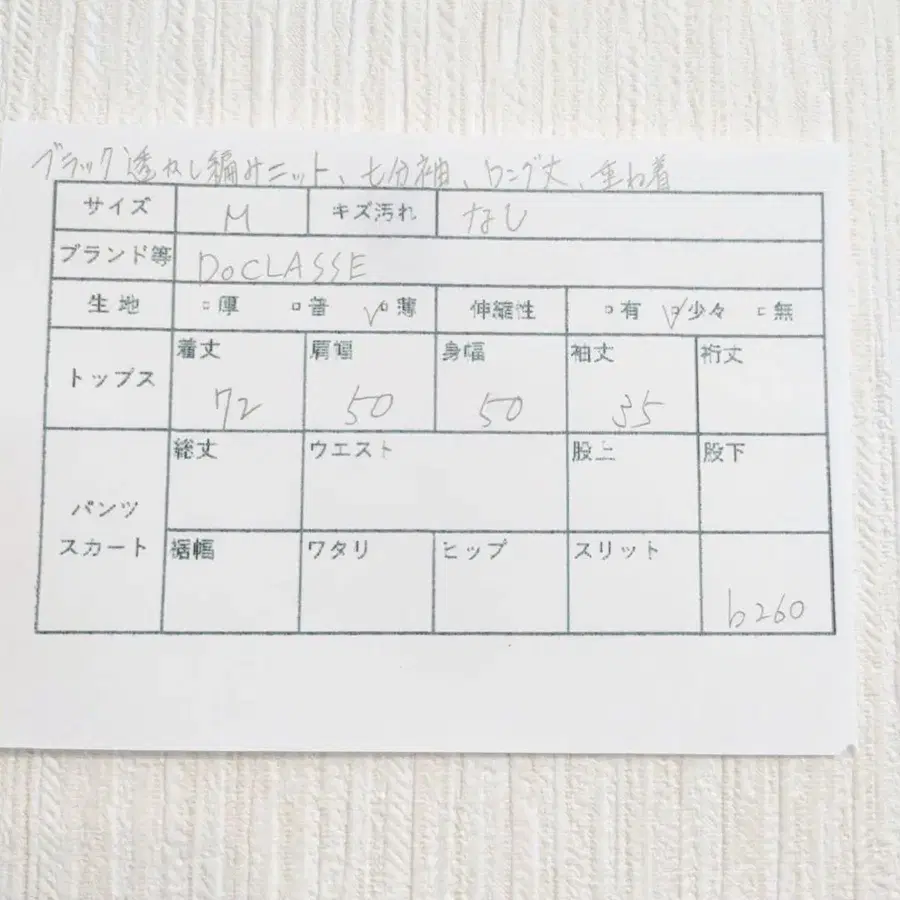 ブラック透かし編みニット、七分袖、ロング丈、重ね着
サイズ M キズ汚れ なし
ブランド等 DoCLASSE
生地 □厚 □普 ☑薄 伸縮性 □有 ☑少々 □無
着丈 肩幅 身幅 袖丈 裄丈
トップス
72 50 50 35
総丈 ウエスト 股上 股下
パンツ
スカート
裾幅 ワタリ ヒップ スリット
b260